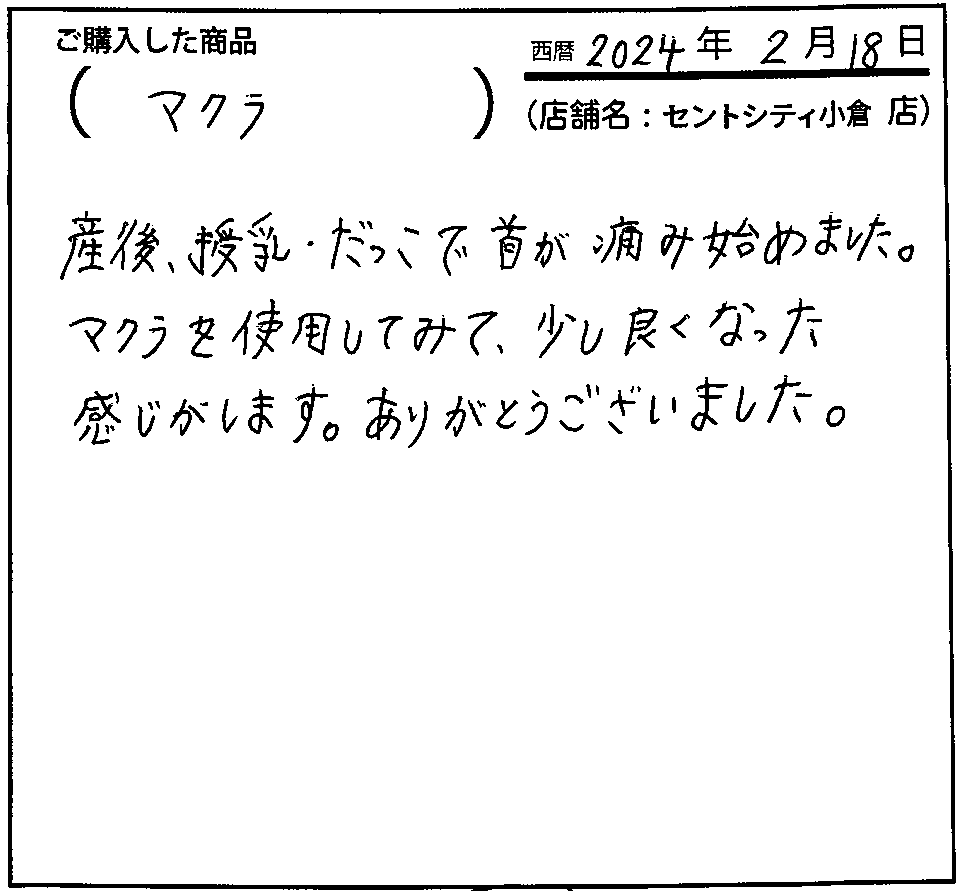 ご購入した商品
西暦 2024 年 2 月 18 日
( マクラ )
(店舗名：セントシティ小倉 店)
産後、授乳・だっこで首が痛み始めました。
マクラを使用してみて、少し良くなった
感じがします。ありがとうございました。